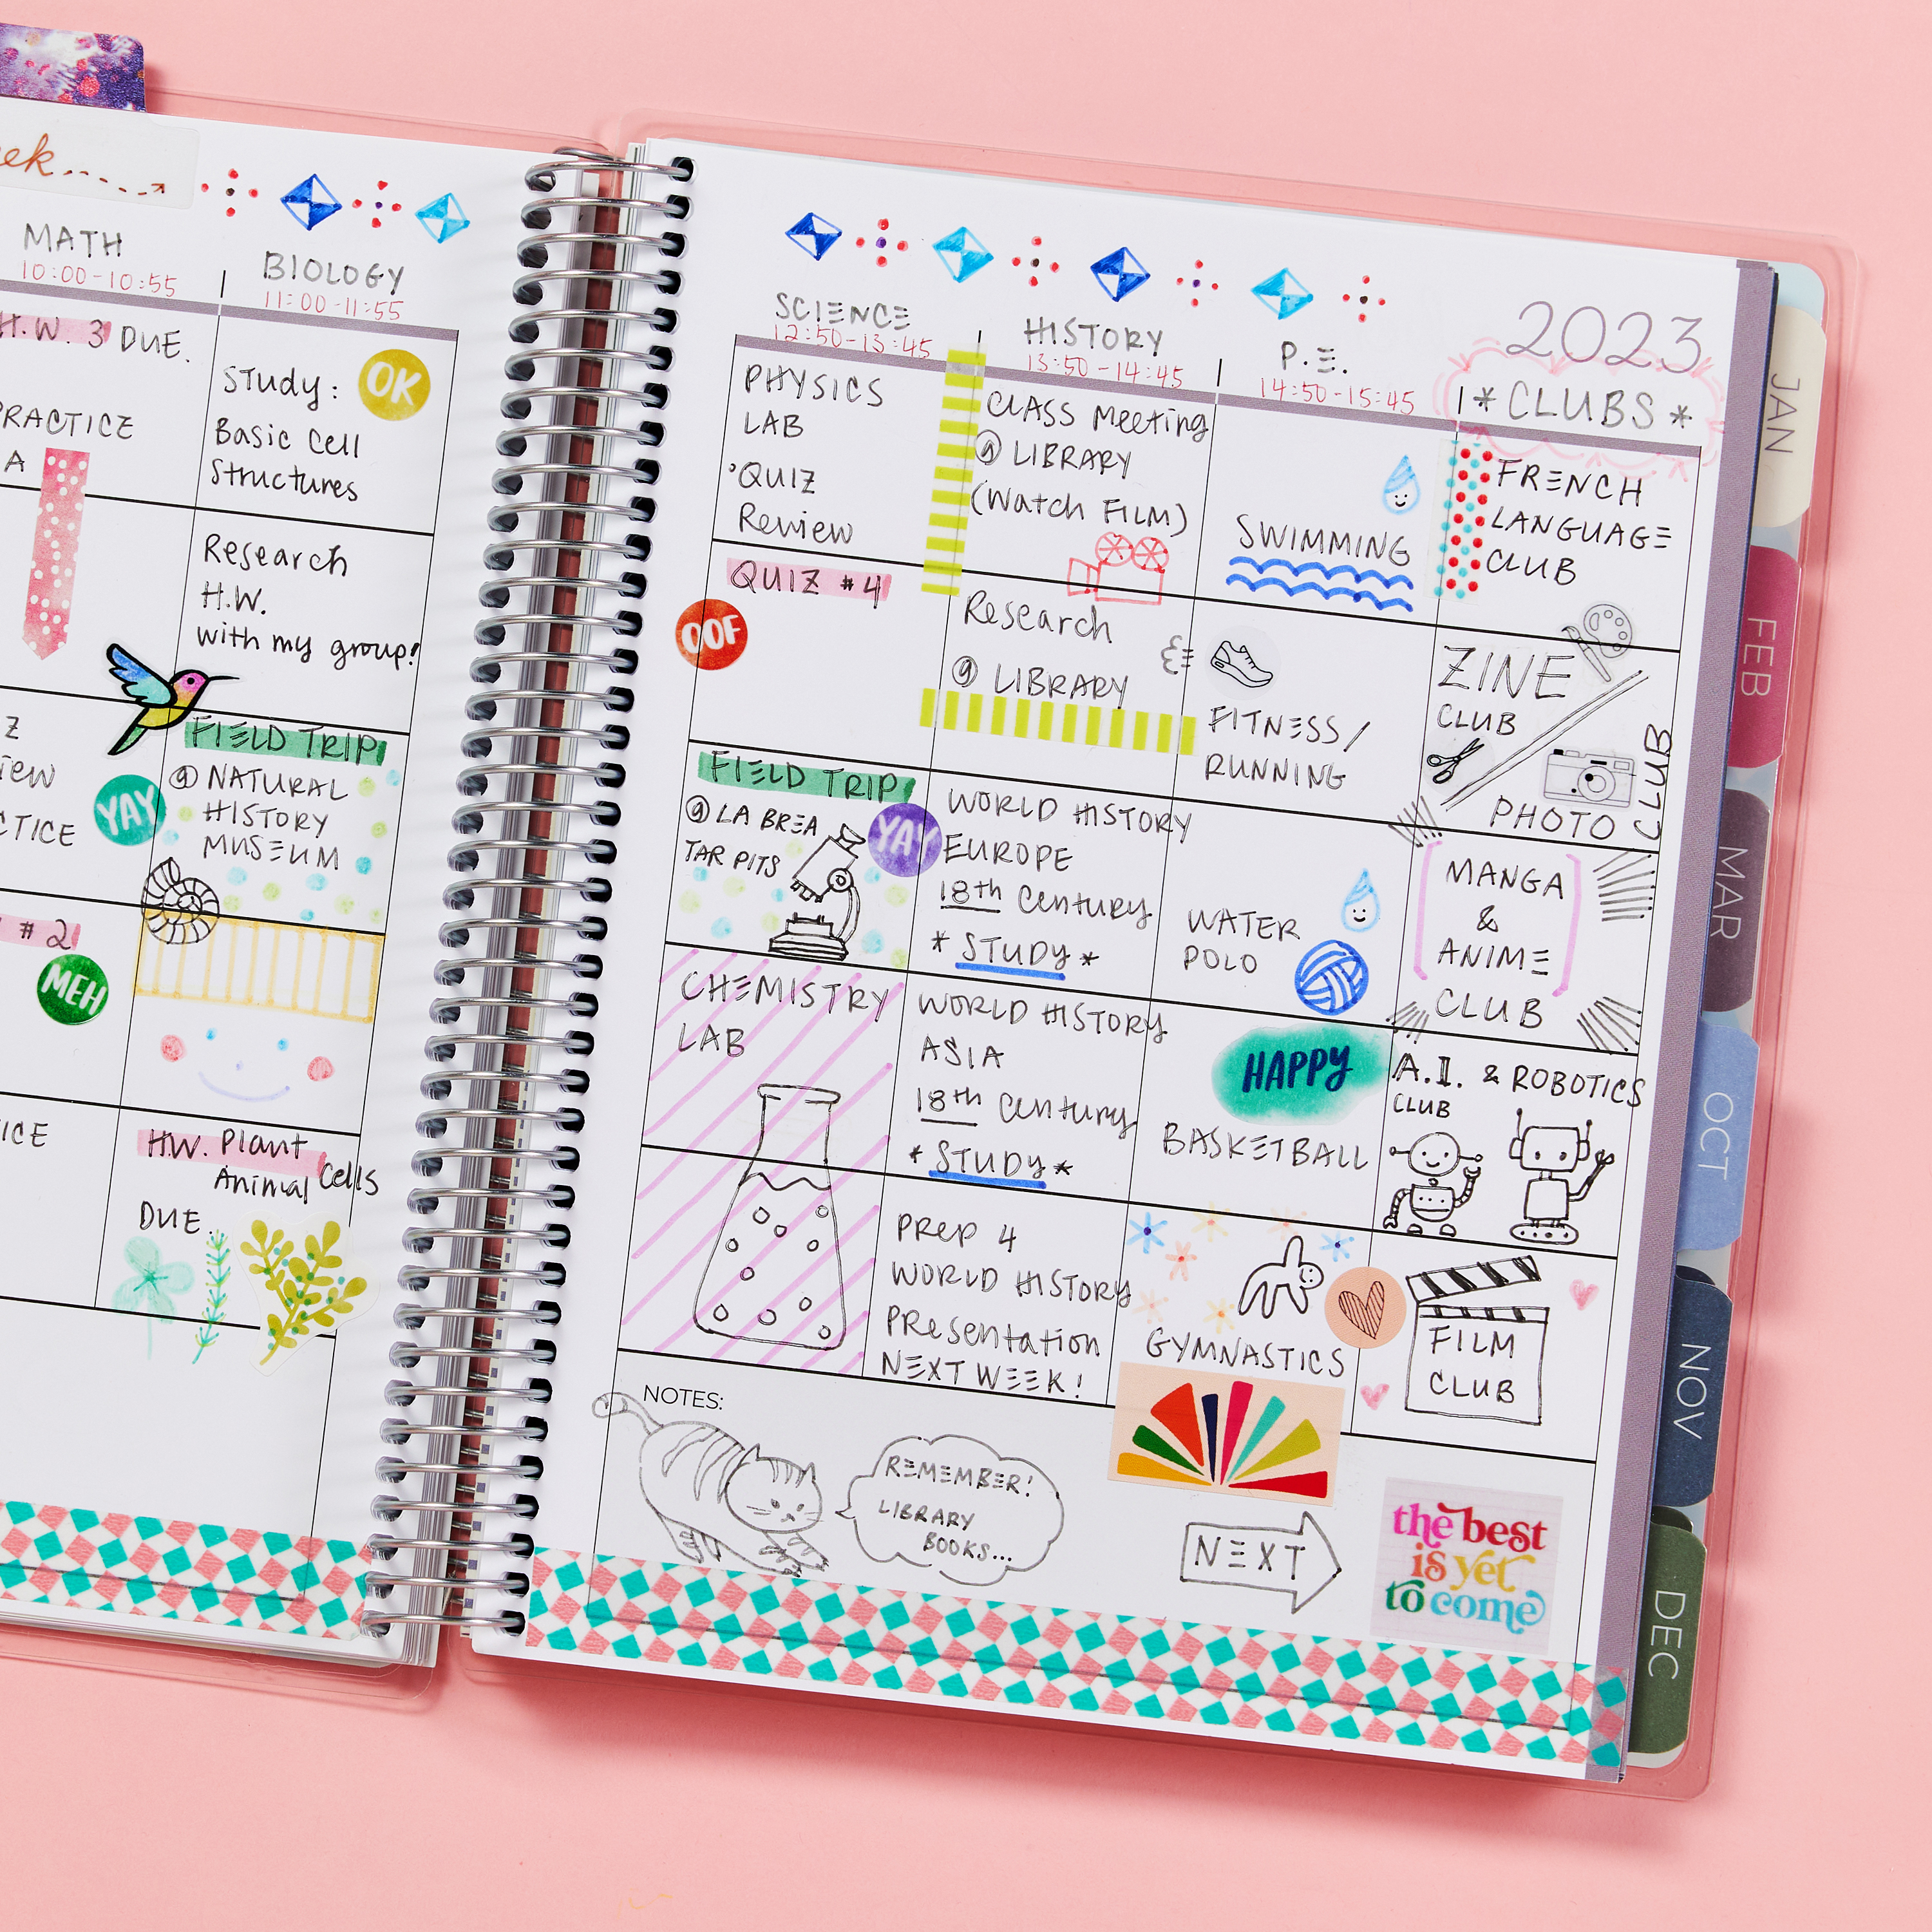 MATH
10:00-10:55
BIOLOGY
11:00-11:55
H.W. 3 DUE.
PRACTICE
A
Study:
OK
Basic Cell
Structures
Research
H.W.
with my group!
YAY
FIELD TRIP
@ NATURAL
HISTORY
MUSEUM
# 2
MEH
H.W. Plant
Animal Cells
DUE.
2023
SCIENCE
12:50-13:45
HISTORY
13:50-14:45
P.E.
14:50-15:45
*CLUBS*
PHYSICS
LAB
'QUIZ
Review
CLASS Meeting
@ LIBRARY
(Watch FILM)
SWIMMING
FRENCH
LANGUAGE
CLUB
QUIZ #4
OOF
Research
@ LIBRARY
FITNESS/
RUNNING
ZINE
CLUB
PHOTO CLUB
FIELD TRIP
@ LA BREA
TAR PITS
YAY
WORLD HISTORY
EUROPE
18th Century
* STUDY *
WATER
POLO
MANGA
&
ANIME
CLUB
CHEMISTRY
LAB
WORLD HISTORY
ASIA
18th Century
* STUDY *
HAPPY
BASKETBALL
A.I. & ROBOTICS
CLUB
PREP 4
WORLD HISTORY
PResentation
NEXT WEEK!
GYMNASTICS
FILM
CLUB
NOTES:
REMEMBER!
LIBRARY
BOOKS...
NEXT
the best
is yet
to come
JAN
FEB
MAR
OCT
NOV
DEC